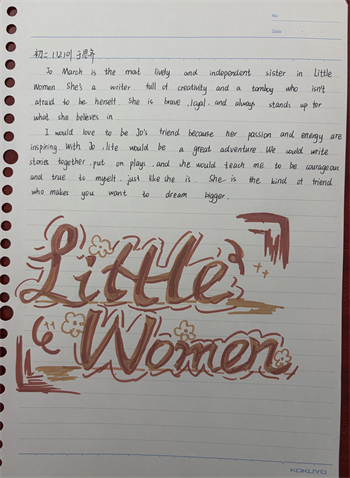 No.
Date
Jo March is the most lively and independent sister in Little
Women. She's a writer full of creativity and a tomboy who isn't
afraid to be herself. She is brave, loyal, and always stands up for
what she believes in.
I would love to be Jo's friend because her passion and energy are
inspiring. With Jo, life would be a great adventure. We would write
stories together, put on plays, and she would teach me to be courageous
and true to myself, just like she is. She is the kind of friend
who makes you want to dream bigger.
Little
Women
KOKUYO